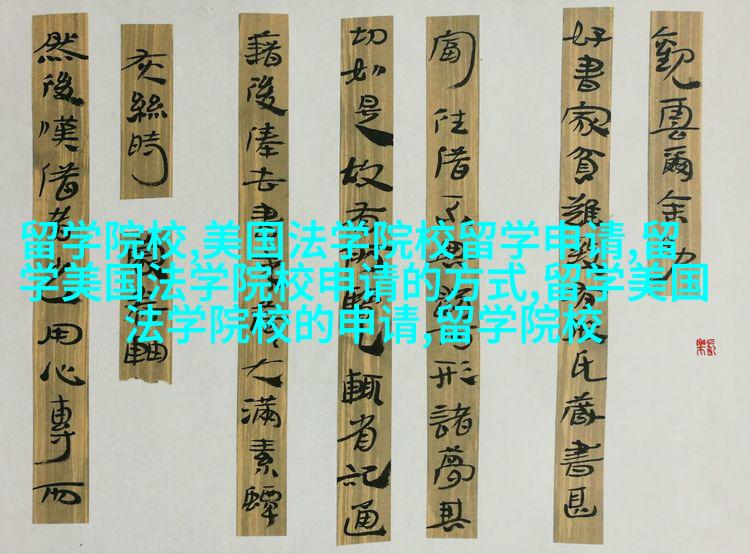 觀雲爾余幼
好書家貧難氏藏書甚
富往借不與形諸夢其
切如是故有覽輒省記通
籍後俸去書大滿素蟫
灰絲時
軸
然後嘆借者用心專而
留学院校,美国法学院校留学申请,留
学美国法学院校申请的方式,留学美国
法学院校的申请,留学院校